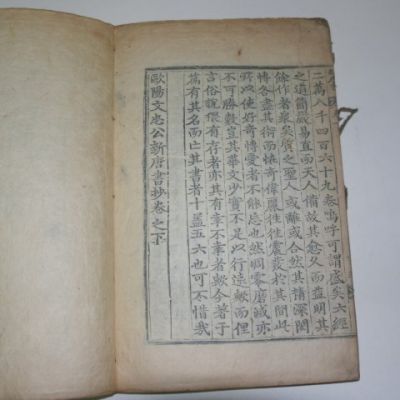 二萬八千四百六十九卷嗚呼可謂盛矣六經
之道簡嚴易直而天人備故其愈久而益明其
餘作者衆矣質之聖人或離或合然其精深閎
博各盡其術而怪奇偉麗往往震發於其間此
所以使好奇博愛者不能忘也然凋零磨滅亦
不可勝數豈其華文少實不足以行遠歟而俚
言俗說猥有存者亦其有幸不幸者歟今著于
篇有其名而亡其書者十盖五六也可不惜哉
歐陽文忠公新唐書抄卷之下